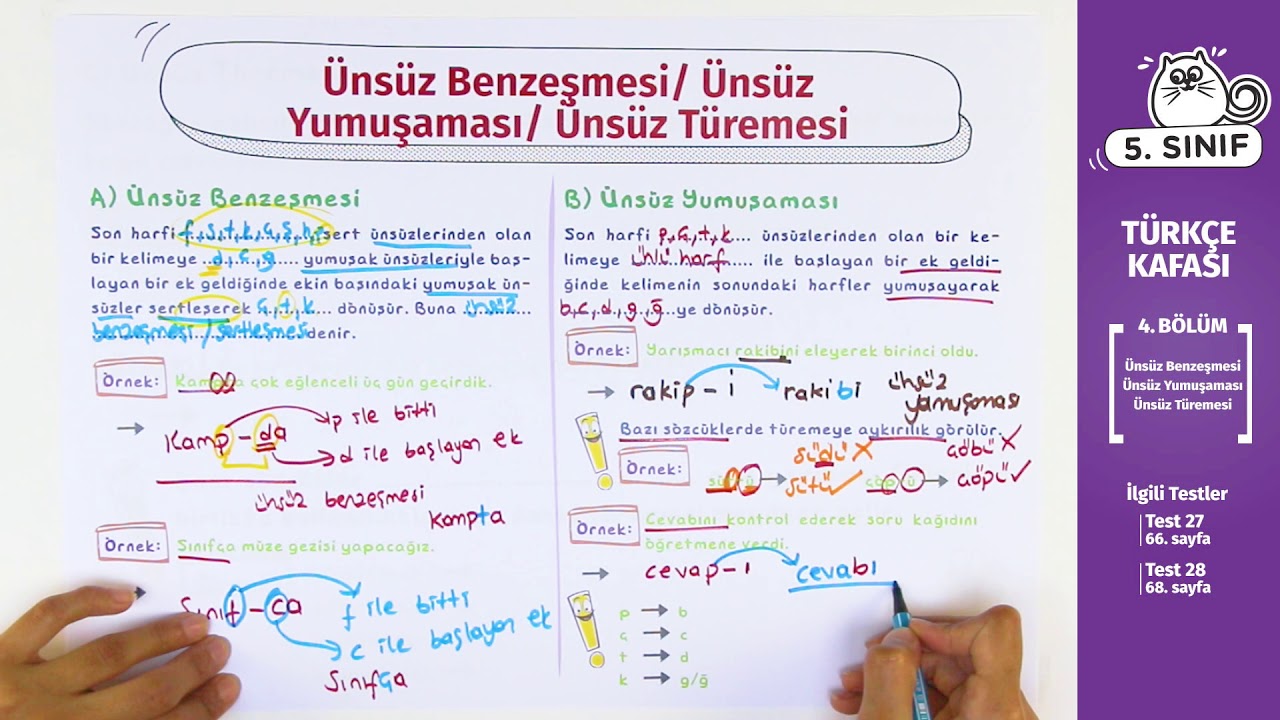 Ünsüz Benzeşmesi/ Ünsüz
Yumuşaması/ Ünsüz Türemesi
A) Ünsüz Benzeşmesi
Son harfi f,s,t,k,ç,ş,h,p sert ünsüzlerinden olan
bir kelimeye d,c,g yumuşak ünsüzleriyle baş-
layan bir ek geldiğinde ekin başındaki yumuşak ün-
süzler sertleşerek ç,t,k... dönüşür. Buna ünsüz
benzeşmesi / sertleşmesi denir.
Örnek:
çok eğlenceli üç gün geçirdik.
Kamp-da
p ile bitti
d ile başlayan ek
ünsüz benzeşmesi
Kampta
Örnek: Sınıfça müze gezisi yapacağız.
Sınıf-ca
f ile bitti
c ile başlayan ek
Sınıfça
B) Ünsüz Yumuşaması
Son harfi p,ç,t,k.... ünsüzlerinden olan bir ke-
limeye ünlü harf ile başlayan bir ek geldi-
ğinde kelimenin sonundaki harfler yumuşayarak
b,c,d,g,ğ ye dönüşür.
Örnek: Yarışmacı rakibini eleyerek birinci oldu.
rakip-i rakibi ünsüz
yumuşaması
Bazı sözcüklerde türemeye aykırılık görülür.
Örnek:
südü X
sütü ✓
göbü X
göpü ✓
Örnek: Cevabını kontrol ederek soru kağıdını
öğretmene verdi.
cevap-ı cevabı
p → b
ç → c
t → d
k → g/ğ
5. SINIF
TÜRKÇE
KAFASI
4. BÖLÜM
Ünsüz Benzeşmesi
Ünsüz Yumuşaması
Ünsüz Türemesi
İlgili Testler
Test 27
66. sayfa
Test 28
68. sayfa